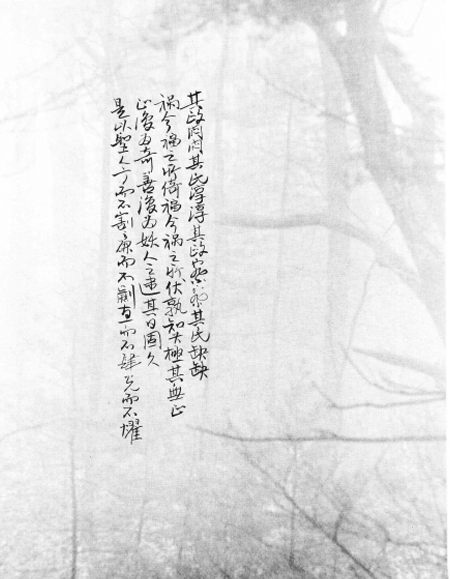 其政闷闷其民淳淳其政察察其民缺缺
祸兮福之所倚福兮祸之所伏孰知其極其無正
正復为奇善復为妖人之迷其日固久
是以聖人方而不割廉而不劌直而不肆光而不耀